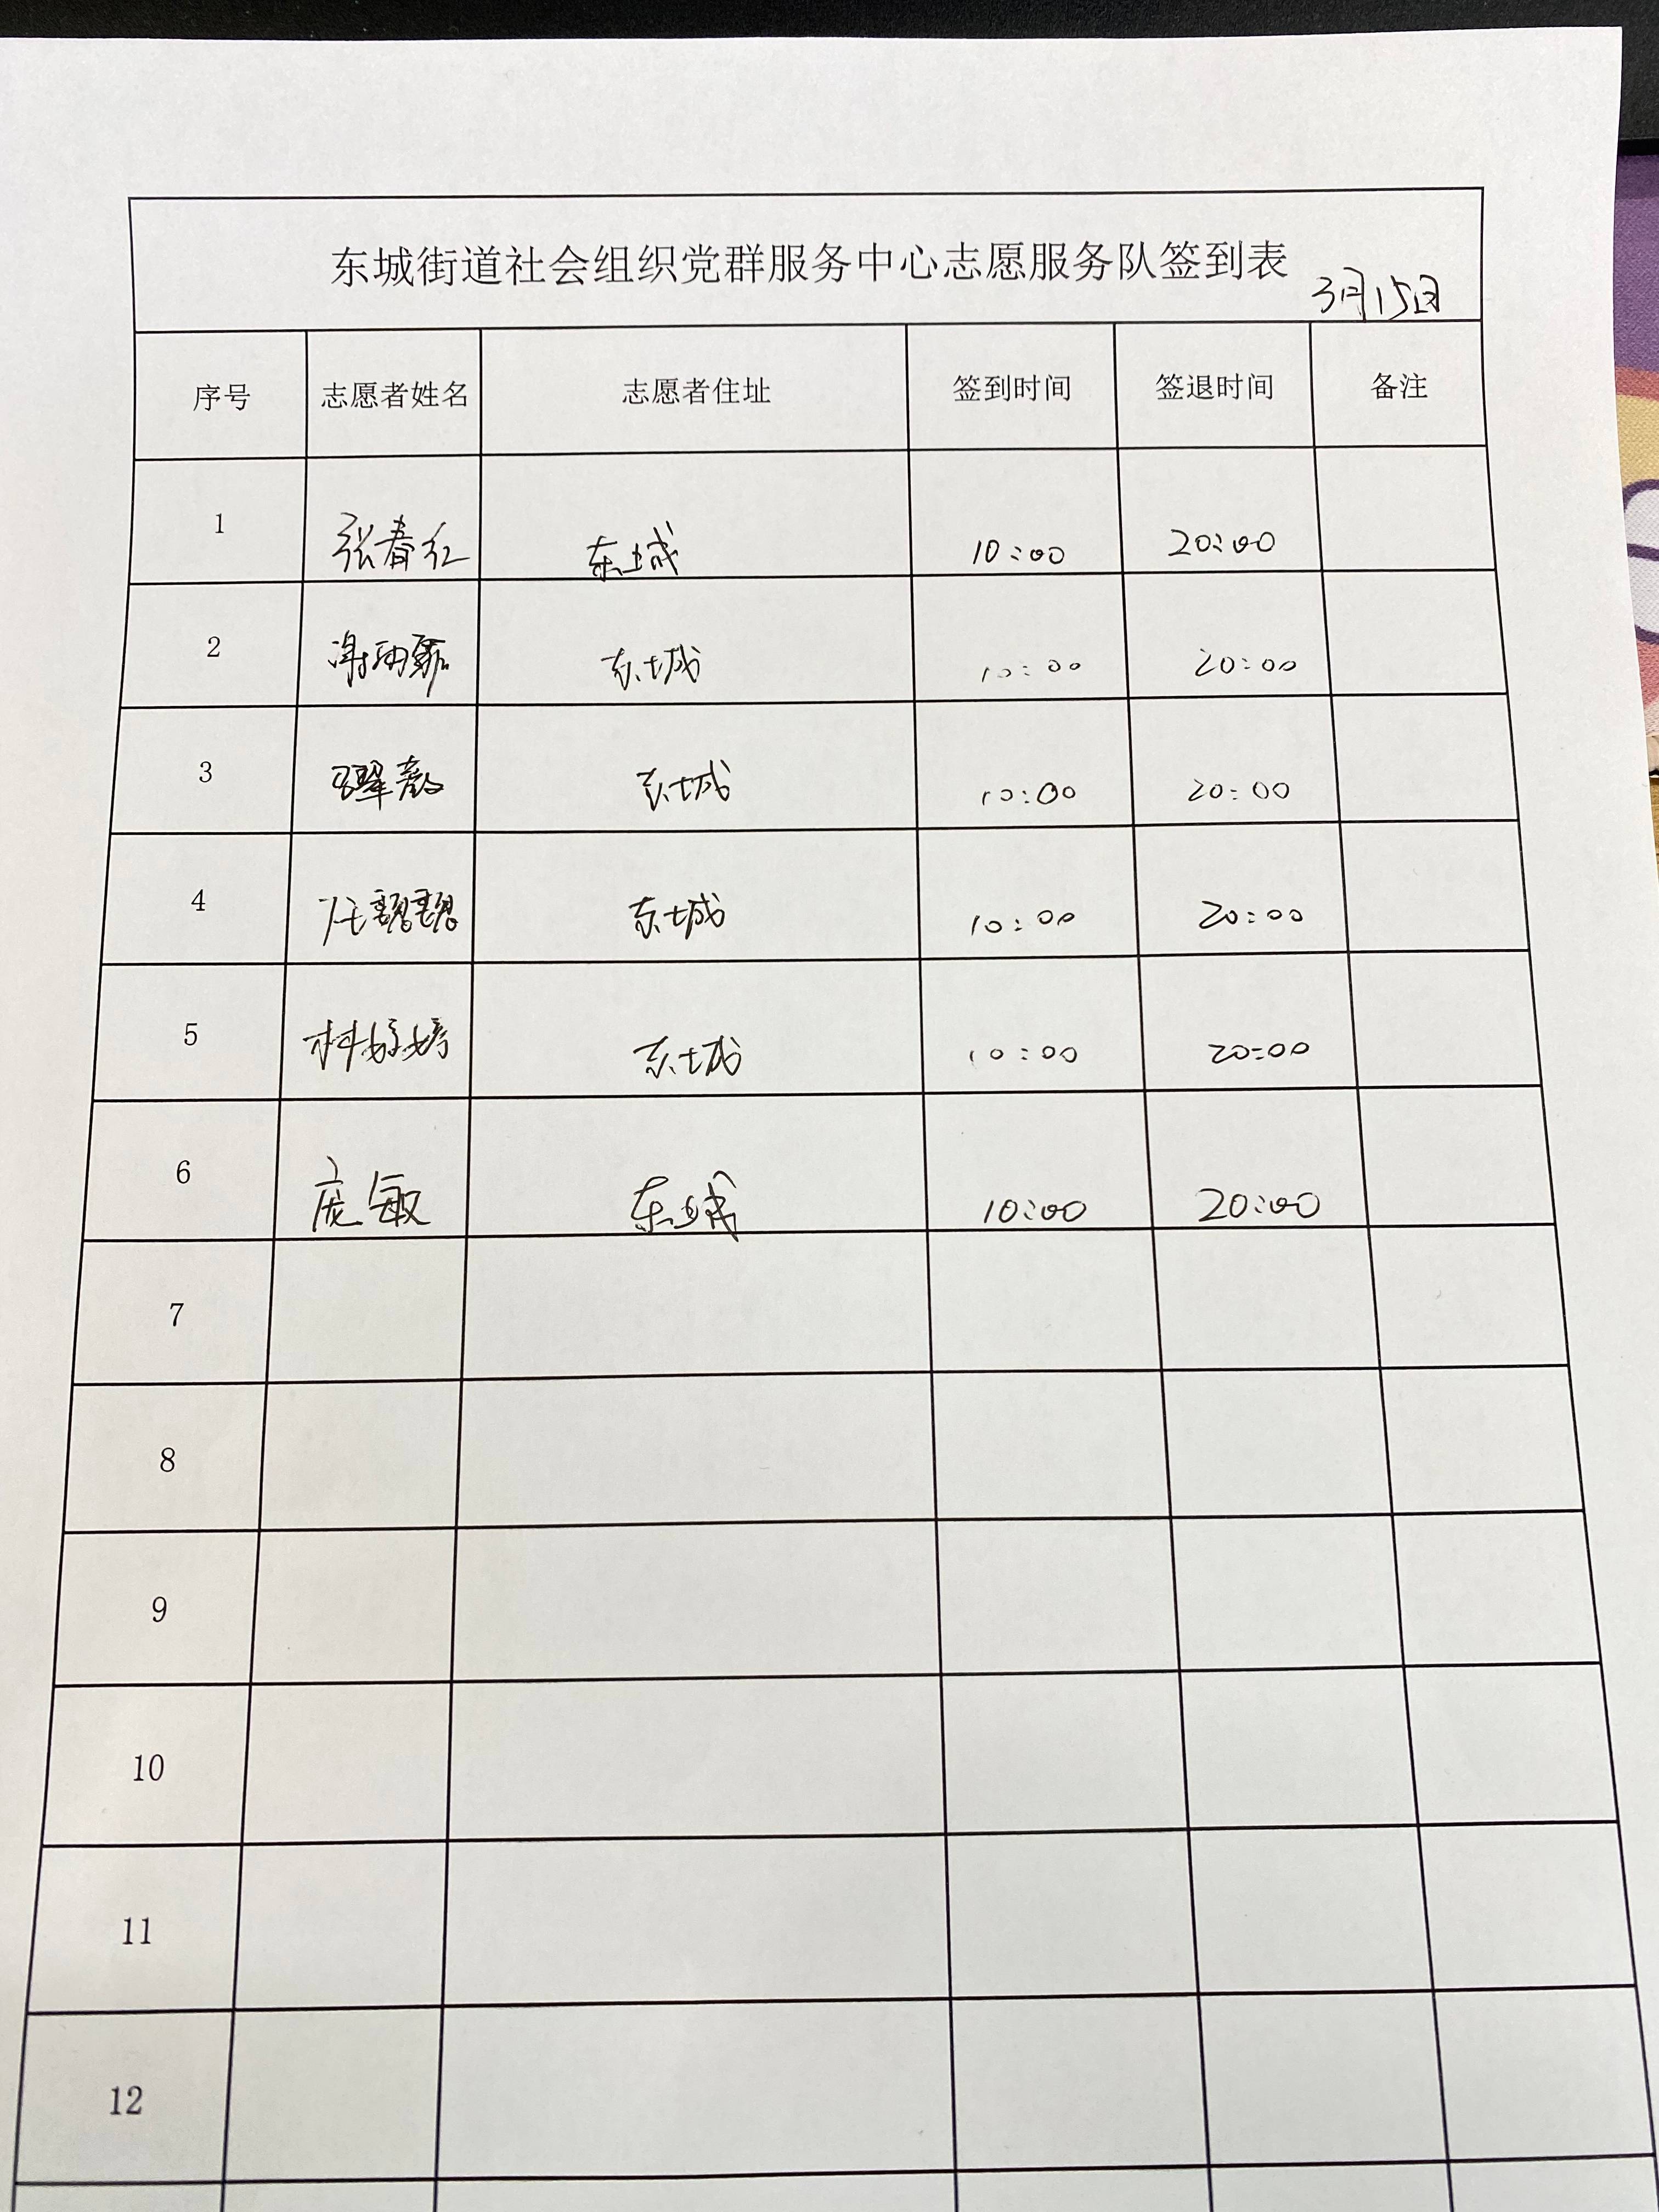 东城街道社会组织党群服务中心志愿服务队签到表
3月15日
序号 志愿者姓名 志愿者住址 签到时间 签退时间 备注
1 张春红 东城 10:00 20:00
2 东城 10:00 20:00
3 东城 10:00 20:00
4 任靓靓 东城 10:00 20:00
5 林婷婷 东城 10:00 20:00
6 庞敏 东城 10:00 20:00
7
8
9
10
11
12